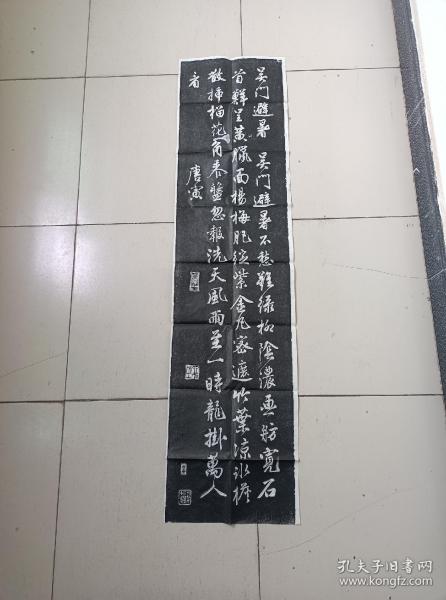 吴门避暑 吴门避暑不愁难绿柳阴浓画舫宽石
首鲜呈黄腊面杨梅肥绽紫金丸密遮竹叶凉冰
散插榴花角黍盘忽报洗天风雨至一时龙挂万人
看
唐寅
孔夫子旧书网
www.kongfz.com